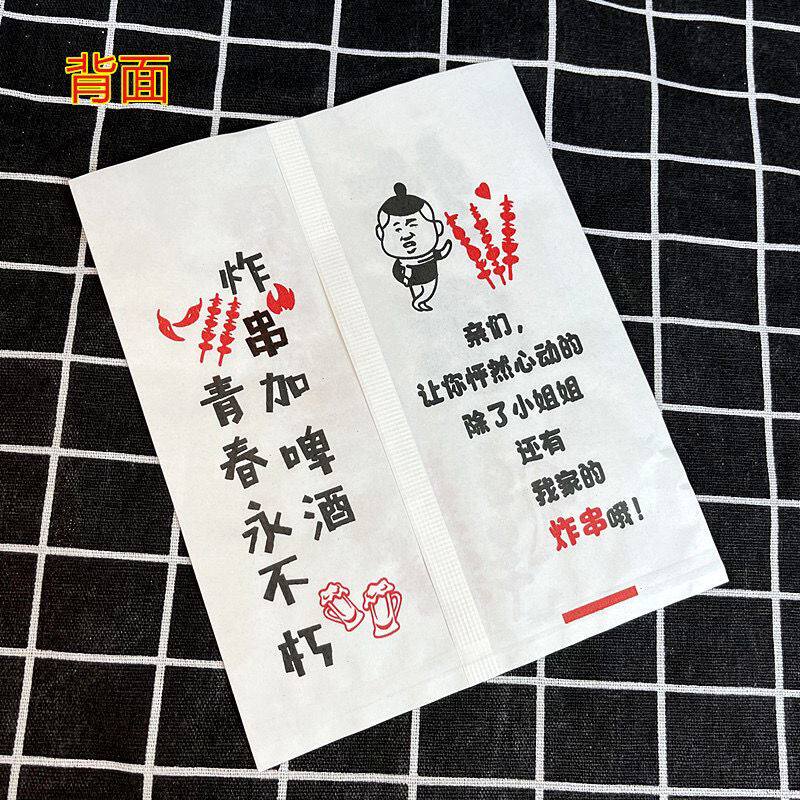 背面
炸串加啤酒
青春永不朽
亲们，
让你怦然心动的
除了小姐姐
还有
我家的
炸串哦！